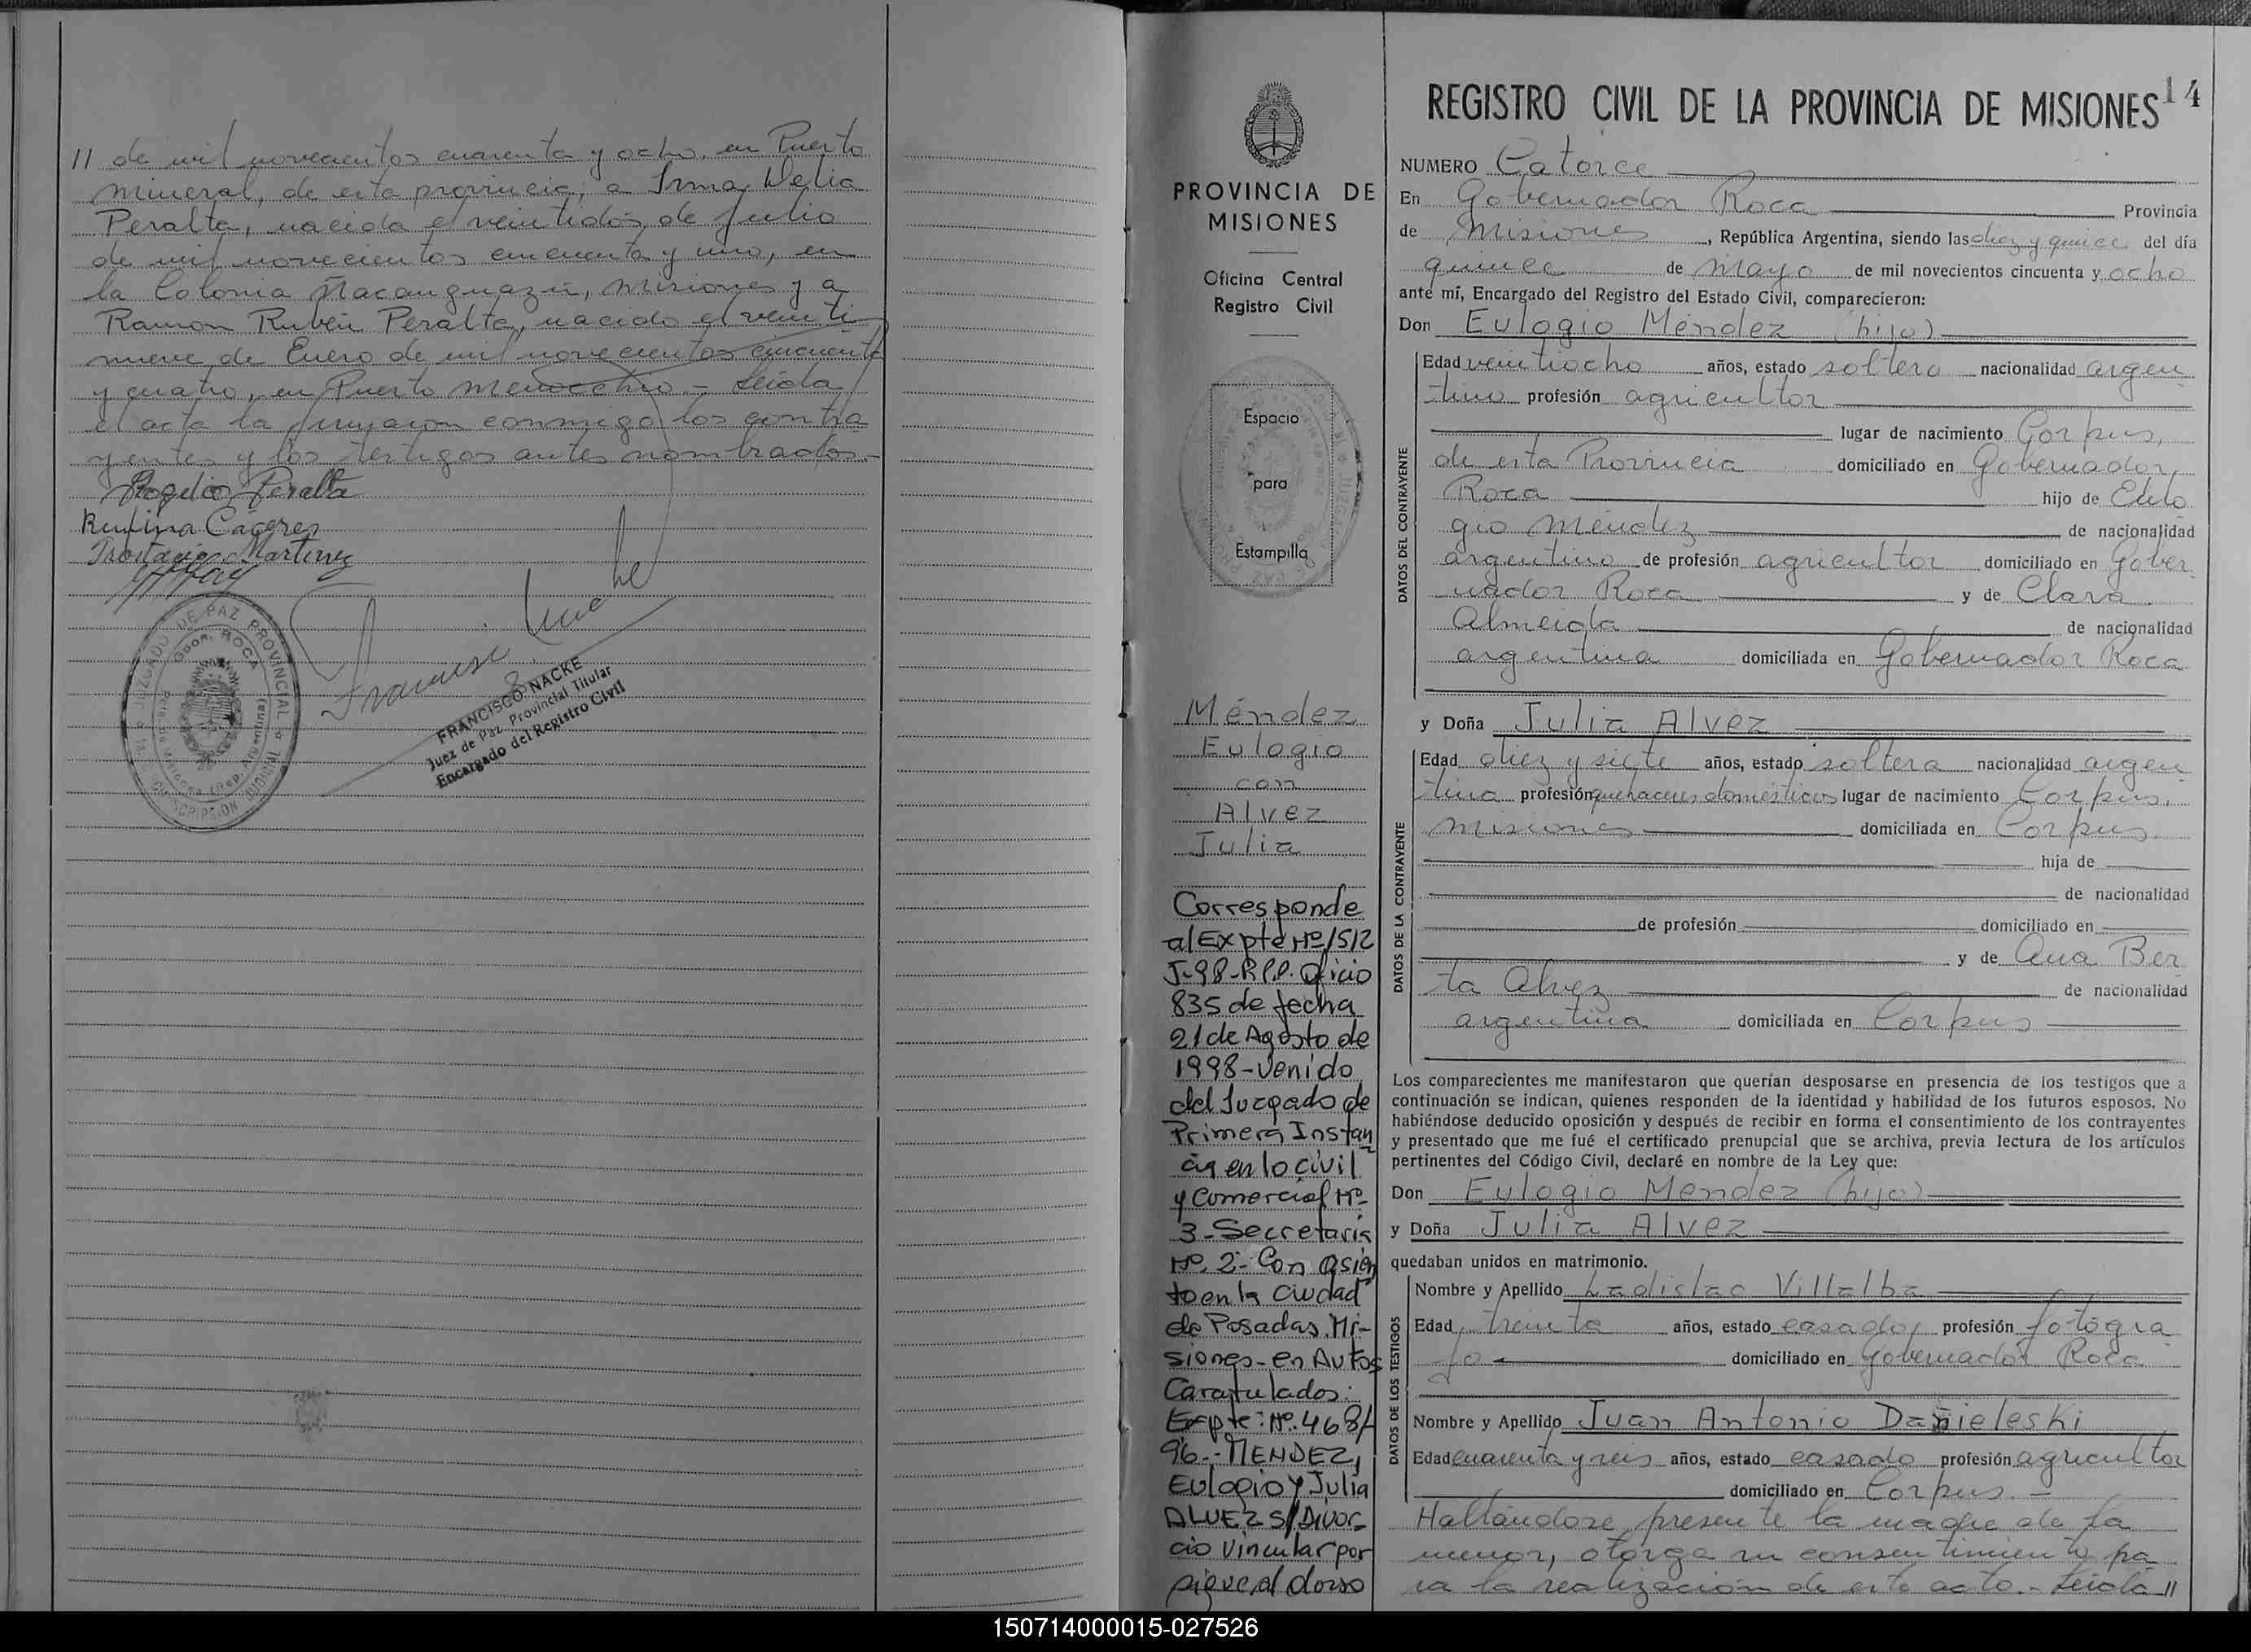 // de mil novecientos cuarenta y ocho, en Puerto
Mineral, de esta provincia; a Irma Delia
Peralta, nacida el veintidós de Julio
de mil novecientos cincuenta y uno, en
la Colonia Ñacanguazú, Misiones y a
Ramon Rubén Peralta, nacido el veinti
nueve de Enero de mil novecientos cincuenta
y cuatro, en Puerto Menocchio - Leida
el acta la firmaron conmigo los contra
yentes y los testigos antes nombrados.-
Rogelio Peralta
Rufina Caceres
Martinez
JUZGADO DE PAZ PROVINCIAL
Gdor. ROCA
FRANCISCO NACKE
Juez de Paz Provincial Titular
Encargado del Registro Civil
PROVINCIA DE
MISIONES
Oficina Central
Registro Civil
Espacio
para
Estampilla
Méndez
Eulogio
con
Alvez
Julia
Corresponde
al Expte Nº 1512
J-98-R.P.P. Oficio
835 de fecha
21 de Agosto de
1998-Venido
del Juzgado de
Primera Instan
cia en lo civil
y Comercial Nº
3-Secretaria
Nº 2- Con asien
to en la ciudad
de Posadas. Mi-
siones- en Autos
Caratulados:
Expte: Nº. 468/
96.- MENDEZ,
Eulogio y Julia
ALVEZ S/ Divor
cio vincular por
sigue al dorso
14
REGISTRO CIVIL DE LA PROVINCIA DE MISIONES
NUMERO Catorce
En Gobernador Roca Provincia
de Misiones, República Argentina, siendo las diez y quince del día
quince de Mayo de mil novecientos cincuenta y ocho
ante mí, Encargado del Registro del Estado Civil, comparecieron:
Don Eulogio Méndez (hijo)
DATOS DEL CONTRAYENTE
Edad veintiocho años, estado soltero nacionalidad argen
tino profesión agricultor
lugar de nacimiento Corpus,
de esta Provincia domiciliado en Gobernador
Roca hijo de Eulo
gio Méndez de nacionalidad
argentino de profesión agricultor domiciliado en Gober
nador Roca y de Clara
Almeida de nacionalidad
argentina domiciliada en Gobernador Roca
y Doña Julia Alvez
DATOS DE LA CONTRAYENTE
Edad diez y siete años, estado soltera nacionalidad argen
tina profesión quehaceres domésticos lugar de nacimiento Corpus,
Misiones domiciliada en Corpus
hija de
de nacionalidad
de profesión domiciliado en
y de Ana Ber
ta Alvez de nacionalidad
argentina domiciliada en Corpus
Los comparecientes me manifestaron que querían desposarse en presencia de los testigos que a
continuación se indican, quienes responden de la identidad y habilidad de los futuros esposos. No
habiéndose deducido oposición y después de recibir en forma el consentimiento de los contrayentes
y presentado que me fué el certificado prenupcial que se archiva, previa lectura de los artículos
pertinentes del Código Civil, declaré en nombre de la Ley que:
Don Eulogio Mendez (hijo)
y Doña Julia Alvez
quedaban unidos en matrimonio.
DATOS DE LOS TESTIGOS
Nombre y Apellido Ladislao Villalba
Edad treinta años, estado casado, profesión fotógra
fo domiciliado en Gobernador Roca
Nombre y Apellido Juan Antonio Danieleski
Edad cuarenta y seis años, estado casado profesión agricultor
domiciliado en Corpus.-
Hallándose presente la madre de la
menor, otorga su consentimiento pa
ra la realización de este acto.- Leida //
150714000015-027526